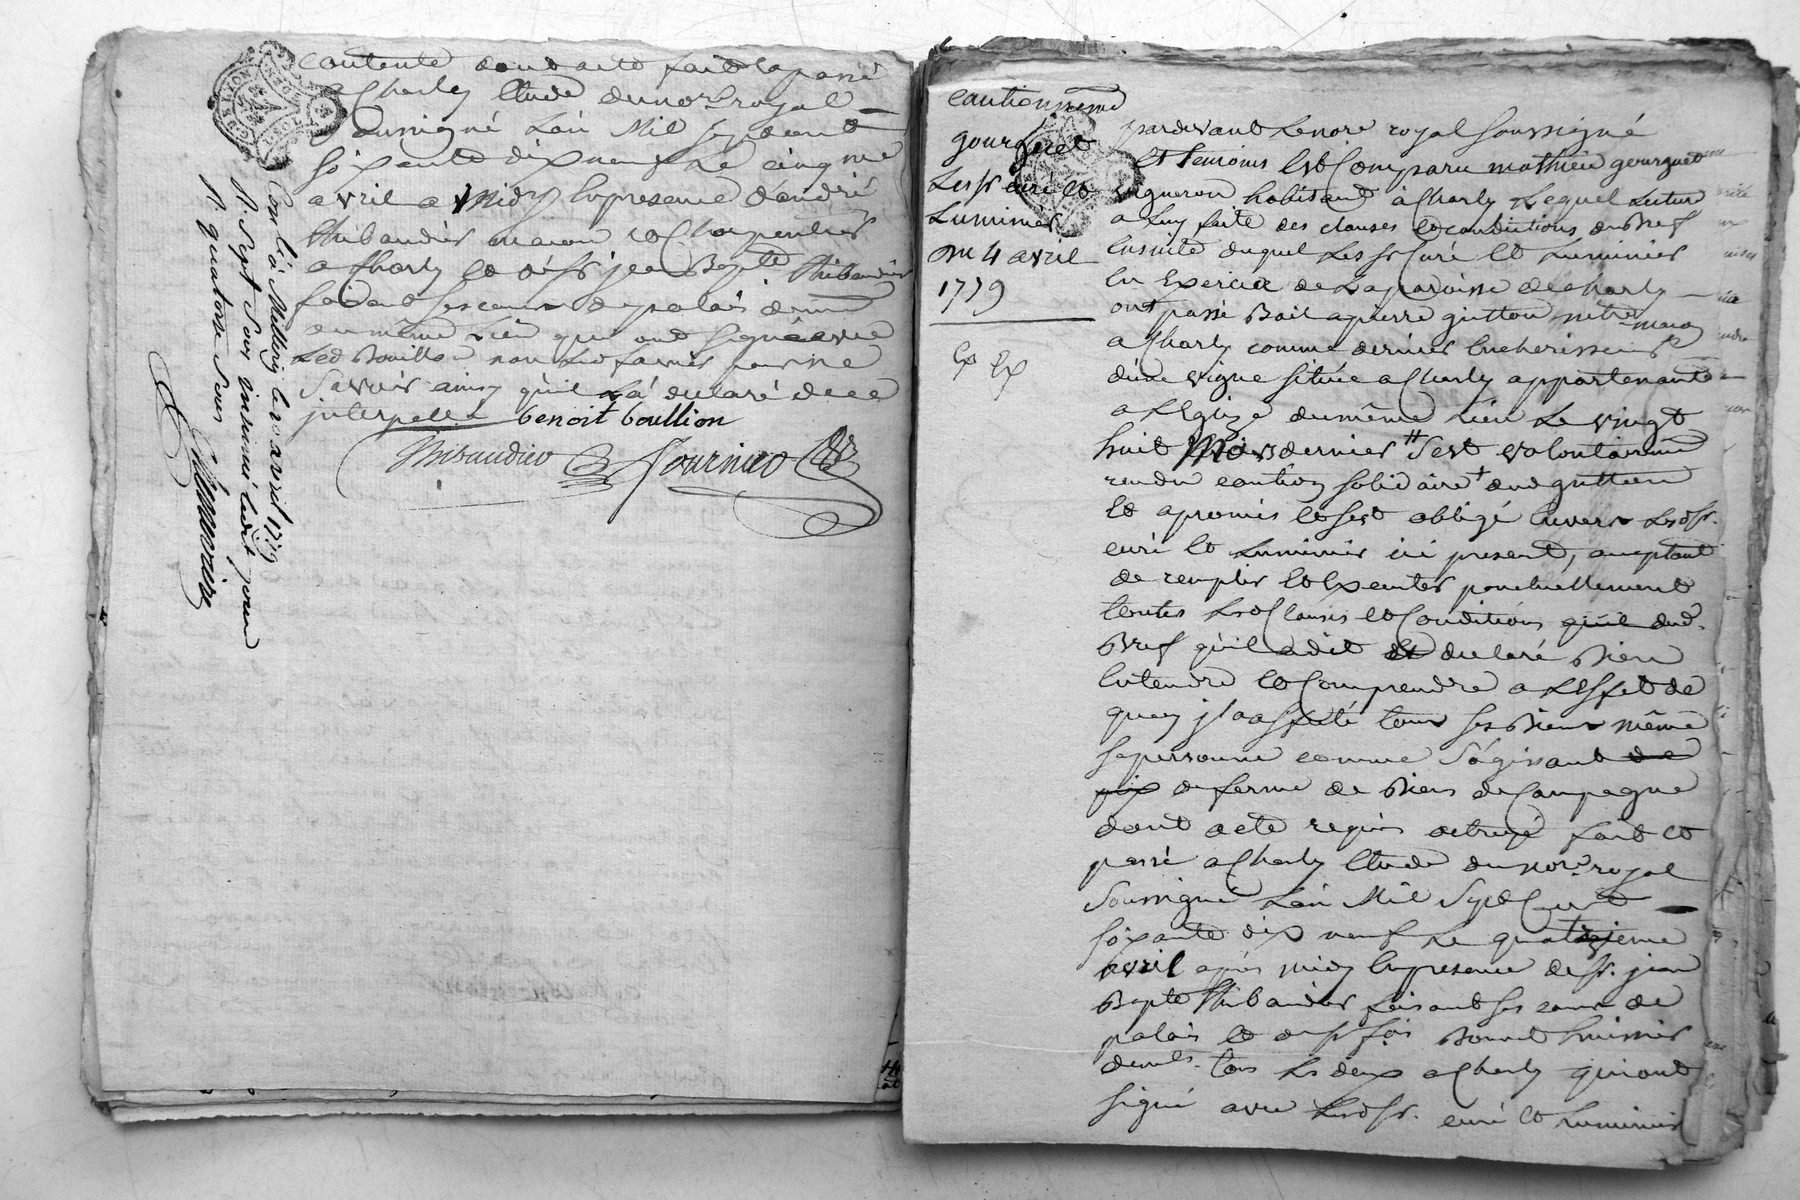 contente dont acte fait et passé
a Charly Etude du no.re royal
soussigné L'an Mil sept cent
soixante dix neuf le cinq me
avril a Midy En presence d'andré
thibaudier macon et Charpentier
a Charly et de sr jean Bapte thibaudier
faisant ses cours de palais demt
au même Lieu qui ont signé avec
Led Bouillon non
savoir ainsy qu'il L'a declaré de ce
interpellé benoit boullion
Thibaudier Fournier
Con.lé à Millery le 10 avril 1779
R. sept sous insinué ledit jour
R. quatorze sous
cautionnement
gourguet
Les sr curé et
Luminier
Du 4 avril
1779
Ex Ex
pardevant Le nore royal soussigné
Et temoins Est Comparu mathieu gourguet
vigneron habitant à Charly Lequel Lecture
a Luy faite des clauses et conditions du Bref
Ensuite duquel Les sr Curé Et Luminier
En Exercice de La paroisse de Charly
ont passé Bail a pierre guitton mtre macon
a Charly comme dernier Encherisseur
d'une vigne située a Charly appartenante
a L'Eglize du même Lieu Le vingt
huit Mars dernier s'est volontairement
rendu caution solidaire dud guitton
Et a promis Et s'est obligé Envers Lesd sr.
curé Et Luminier ici present, acceptant
de remplir Et Exenter ponctuellement
toutes Lesd Clauses Et Conditions qu'il dud.
Bref qu'il a dit et declaré Bien
Entendre Et Comprendre a L'Effet de
quoy il a affecté tous ses Biens même
sa personne comme s'agissant de
prix de ferme de Biens de Campagne
dont acte requis octroyé fait et
passé a Charly Etude du nore royal
Soussigné L'an Mil Sept Cent
soixante dix neuf Le quatrieme
avril après midy En presence de sr. jean
Bapte thibaudier faisant ses cours de
palais Et de sr fois Bonnet huissier
demts. tous Les deux a Charly qui ont
signé avec Lesd sr. curé et Luminier